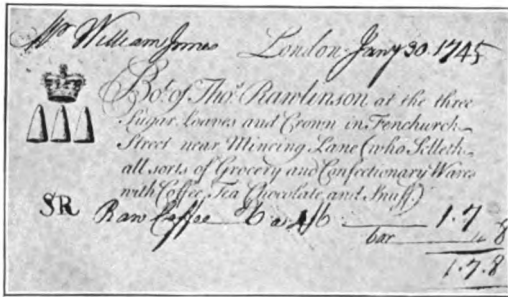 Mr William Jones
London Jany 30. 1745
Bot. of Thos. Rawlinson at the three
Sugar Loaves and Crown in Fenchurch
Street near Mincing Lane (who Selleth
all sorts of Grocery and Confectionary Wares
with Coffee, Tea Chocolate and Snuff.)
SR
Raw Coffee 6 a 4/6 1.7
bar 8
1.7.8